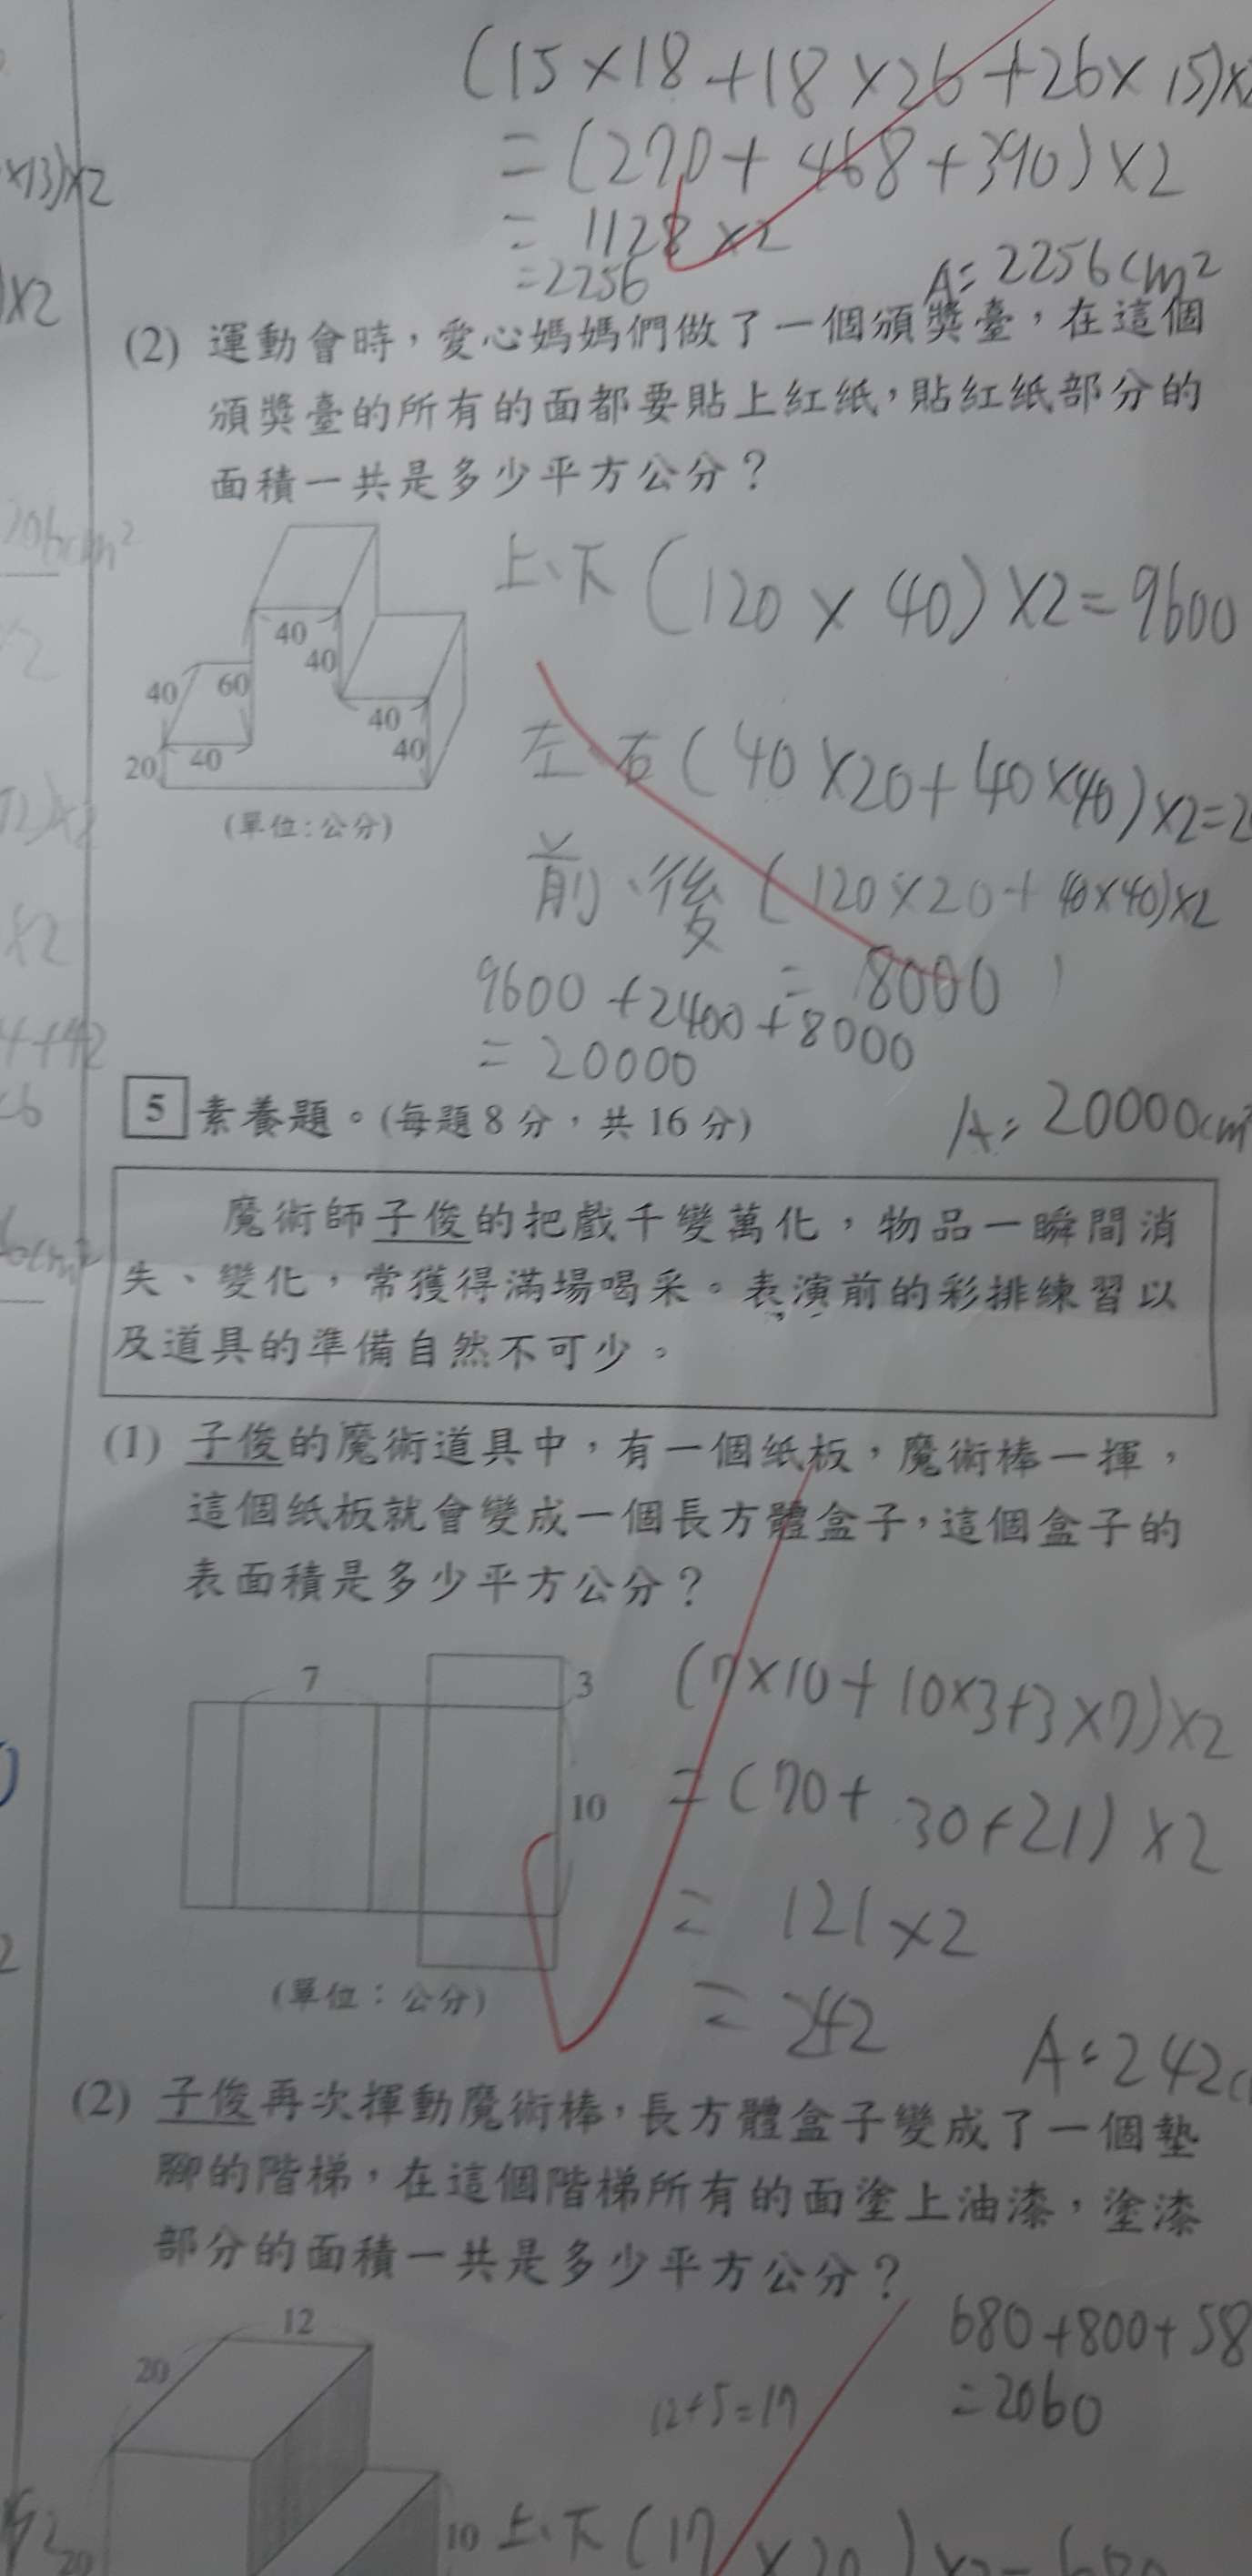 (15×18+18×26+26×15)×
×13)×2
=(270+468+390)×2
=1128×2
=2256
A=2256cm²
)×2
(2) 運動會時，愛心媽媽們做了一個頒獎臺，在這個
頒獎臺的所有的面都要貼上紅紙，貼紅紙部分的
面積一共是多少平方公分？
上、下(120×40)×2=9600
40
40
40
60
40
40
20
40
(單位：公分)
左、右(40×20+40×40)×2=2
前、後(120×20+40×40)×2
=8000
9600+2400+8000
=20000
A=20000cm²
5 素養題。(每題8分，共16分)
魔術師子俊的把戲千變萬化，物品一瞬間消
失、變化，常獲得滿場喝采。表演前的彩排練習以
及道具的準備自然不可少。
(1) 子俊的魔術道具中，有一個紙板，魔術棒一揮，
這個紙板就會變成一個長方體盒子，這個盒子的
表面積是多少平方公分？
7
3
10
(單位：公分)
(7×10+10×3+3×7)×2
=(70+30+21)×2
=121×2
=242
A=242c
(2) 子俊再次揮動魔術棒，長方體盒子變成了一個墊
腳的階梯，在這個階梯所有的面塗上油漆，塗漆
部分的面積一共是多少平方公分？
12
20
10
20
680+800+58
=2060
12+5=17
上、下(17×20)×2=680